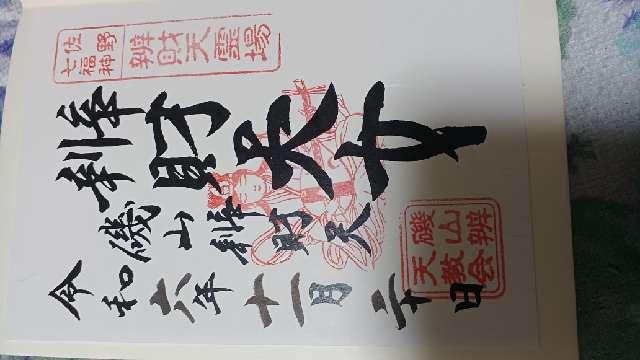 佐野
七福神
辨財天靈場
辨財天女
磯山辨財天
令和六年十一月二十日
磯山辨
天教会